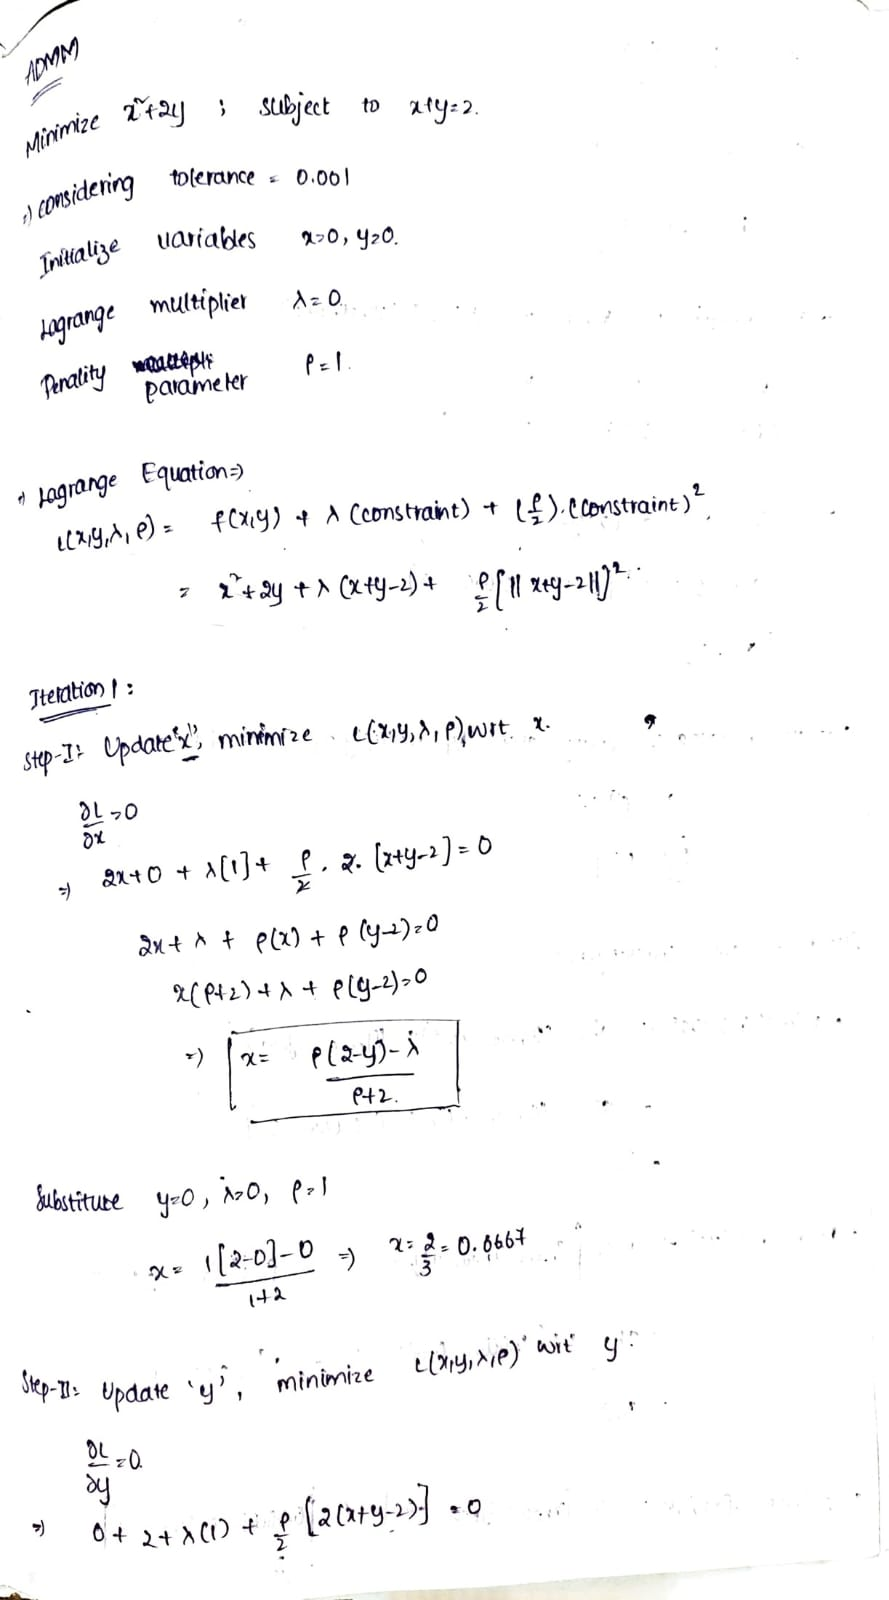 ADMM
Minimize x²+2y ; subject to x+y=2.
⇒) considering tolerance = 0.001
Initialize variables x=0, y=0.
Lagrange multiplier λ=0.
Penality parameter ρ=1.
⇒) Lagrange Equation⇒)
L(x,y,λ,ρ) = f(x,y) + λ (constraint) + (ρ/2).(constraint)²
= x²+2y + λ (x+y-2) + ρ/2 [|| x+y-2||]².
Iteration 1 :
Step-I: Update 'x', minimize L(x,y,λ,ρ) wrt x.
∂L/∂x =0
⇒) 2x+0 + λ[1] + ρ/2 . 2. [x+y-2] = 0
2x + λ + ρ(x) + ρ (y-2)=0
x(ρ+2) + λ + ρ(y-2)=0
⇒) x= ρ(2-y)-λ / ρ+2.
Substitute y=0, λ=0, ρ=1
x = 1[2-0]-0 / 1+2 ⇒) x= 2/3 = 0.6667
Step-II: Update 'y', minimize L(x,y,λ,ρ) wrt y.
∂L/∂y =0.
⇒) 0+ 2+ λ(1) + ρ/2 [2(x+y-2)] = 0